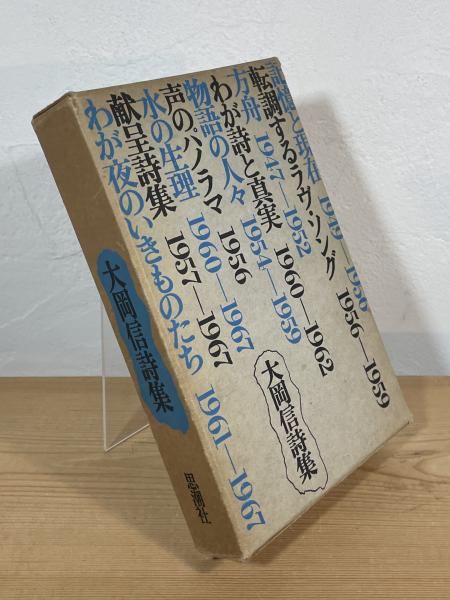 記憶と現在
転調するラヴ・ソング 1956—1959
方舟 1947—1952
わが詩と真実 1960—1962
物語の人々 1954—1959
声のパノラマ 1956
水の生理 1960—1967
献呈詩集 1957—1967
わが夜のいきものたち 1961—1967
大岡信詩集
大岡信詩集
思潮社